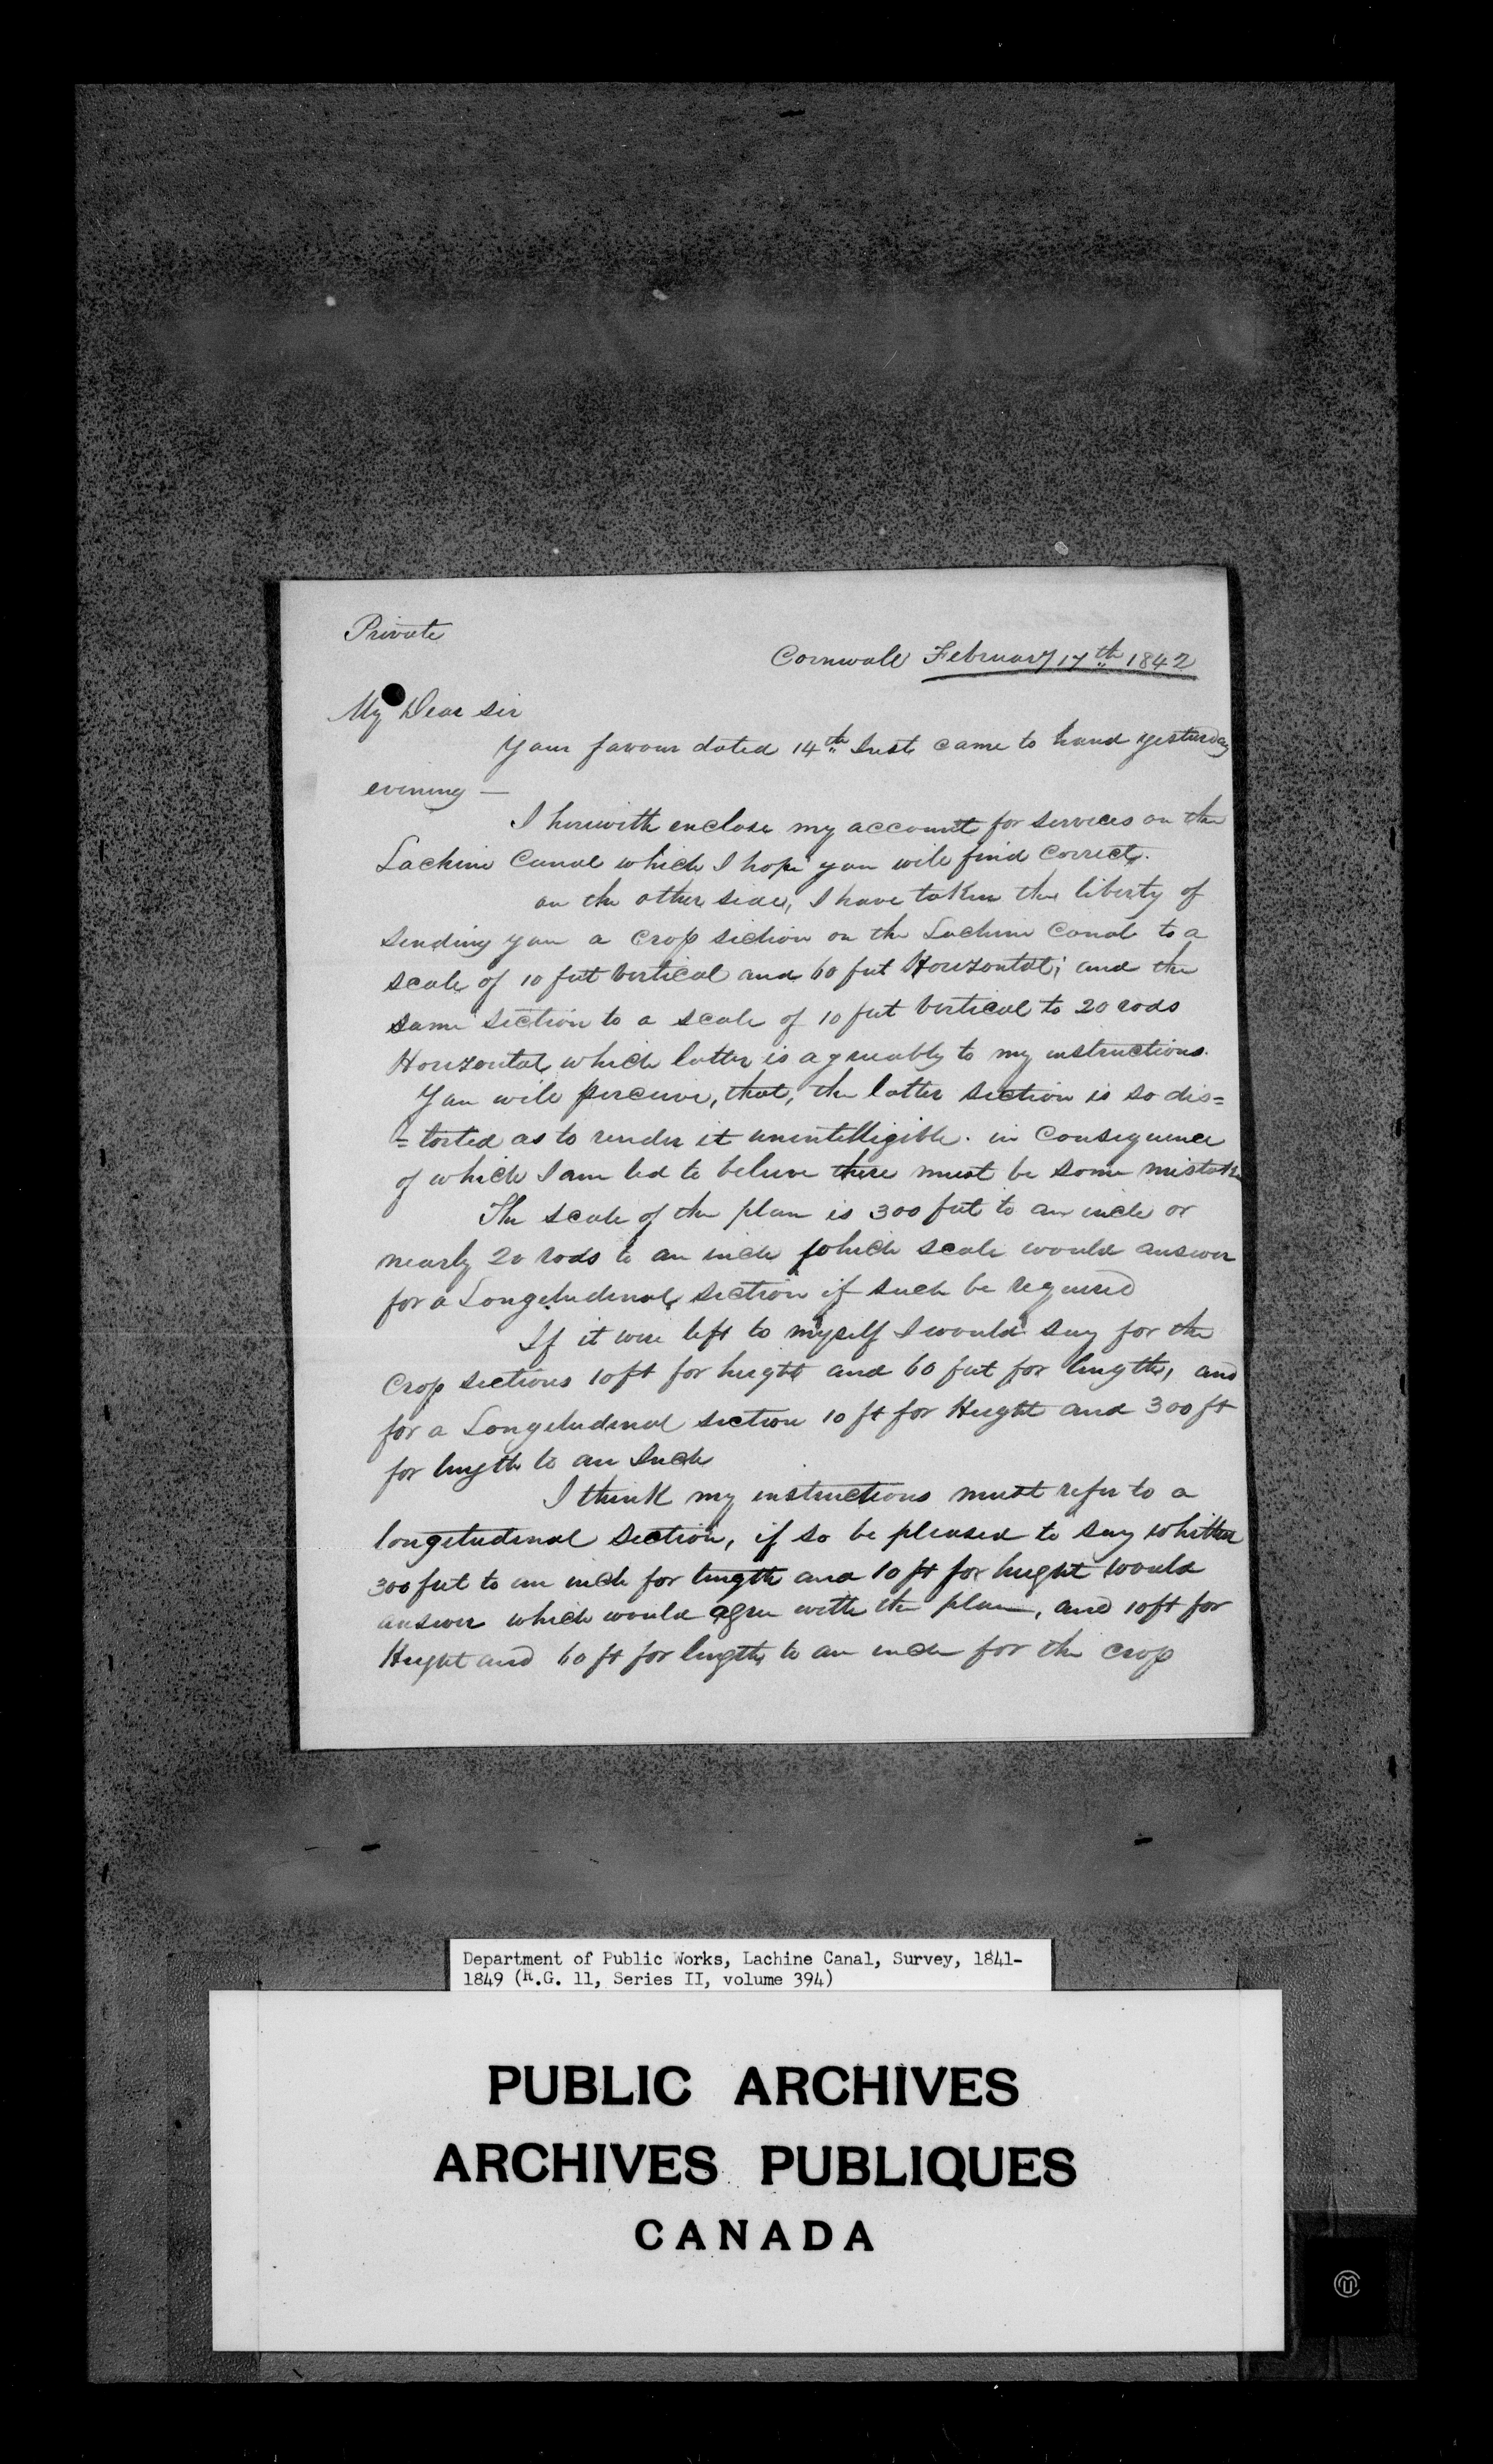 Private
Cornwall February 17th 1842
My Dear Sir
Your favour dated 14th Inst came to hand yesterday
evening —
I herewith enclose my account for services on the
Lachine Canal which I hope you will find correct.
on the other side, I have taken the liberty of
sending you a Crop section on the Lachine Canal to a
scale of 10 feet vertical and 60 feet Horizontal; and the
same section to a scale of 10 feet vertical to 20 rods
Horizontal, which latter is agreeably to my instructions.
You will perceive, that, the latter section is so dis=
=torted as to render it unintelligible. in Consequence
of which I am led to believe there must be some mistake
The scale of the plan is 300 feet to an inch or
nearly 20 rods to an inch which scale would answer
for a Longetudenal section if such be required
If it were left to myself I would say for the
Crop sections 10 ft for height and 60 feet for length, and
for a Longetudenal section 10 ft for Height and 300 ft
for length to an Inch
I think my instructions must refer to a
longetudenal section, if so be pleased to say whither
300 feet to an inch for length and 10 ft for height would
answer which would agree with the plan, and 10 ft for
Height and 60 ft for length to an inch for the crop
Department of Public Works, Lachine Canal, Survey, 1841-
1849 (R.G. 11, Series II, volume 394)
PUBLIC ARCHIVES
ARCHIVES PUBLIQUES
CANADA